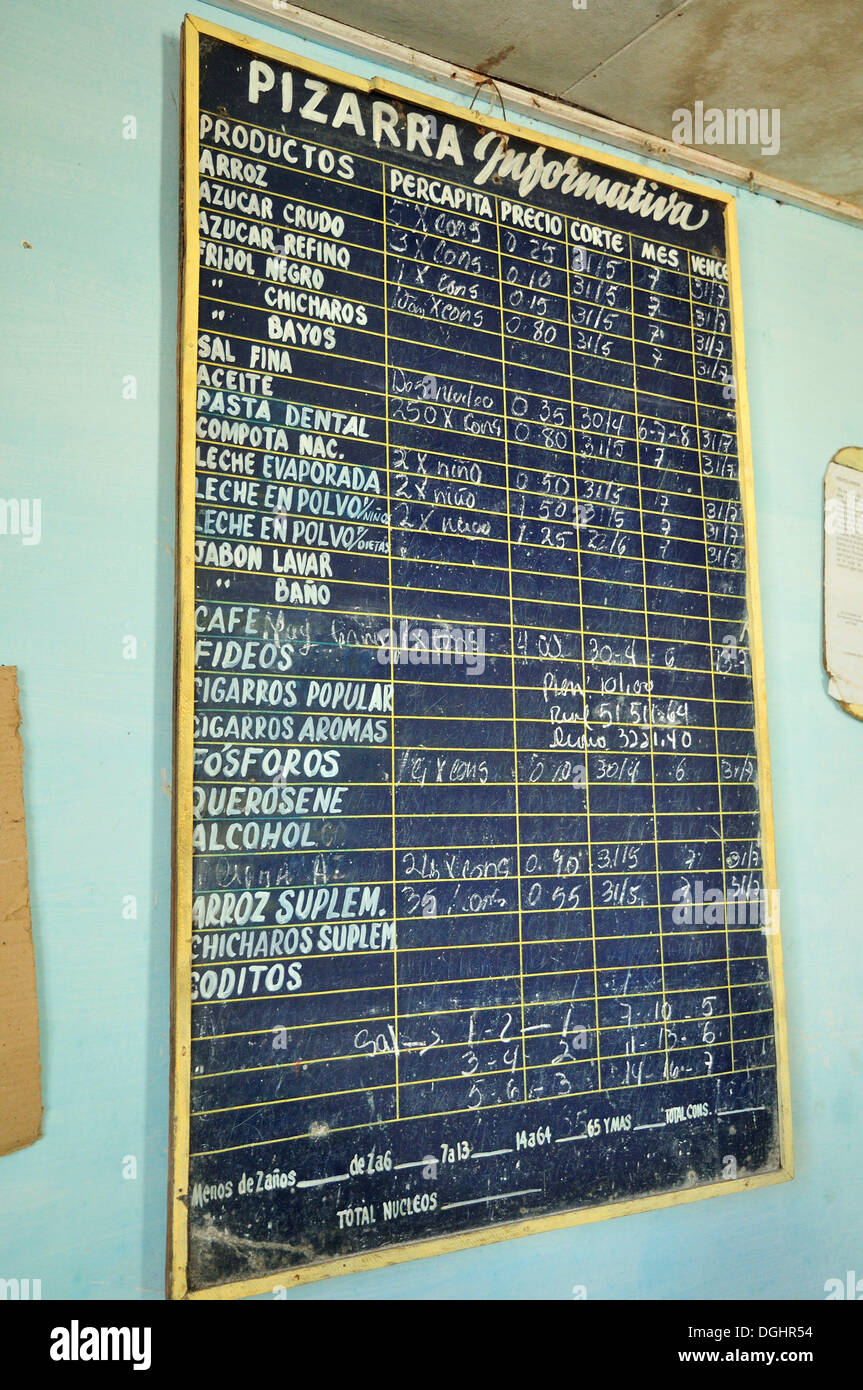 PIZARRA Informativa
PRODUCTOS PERCAPITA PRECIO CORTE MES VENCE
ARROZ 5 X cons 0.25 31/5 7 31/7
AZUCAR CRUDO 3 X cons 0.10 31/5 7 31/7
AZUCAR REFINO 1 X cons 0.15 31/5 7 31/7
FRIJOL NEGRO X cons 0.80 31/5 7 31/7
" CHICHAROS
" BAYOS
SAL FINA 0.35 30/4 6-7-8 31/7
ACEITE 250 X cons 0.80 31/5 7 31/7
PASTA DENTAL
COMPOTA NAC. 2 X niño 0.50 31/5 7 31/7
LECHE EVAPORADA 2 X niño 1.50 31/5 7 31/7
LECHE EN POLVO P/NIÑOS 2 X 1.25 7 31/7
LECHE EN POLVO P/DIETAS
JABON LAVAR
" BAÑO
CAFE X cons 4.00 30-4 6
FIDEOS
CIGARROS POPULAR
CIGARROS AROMAS
FÓSFOROS X cons 30/4 6 31/7
QUEROSENE
ALCOHOL
X cons 0.90 31/5 7 31/7
ARROZ SUPLEM. cons 0.55 31/5 7 31/7
CHICHAROS SUPLEM
CODITOS
Sal → 1-2-1 7-10-5
3-4 2 11-13-6
5-6-3 14-16-7
Menos de 2 años de 2 a 6 7 a 13 14 a 64 65 Y MAS TOTAL CONS.
TOTAL NUCLEOS
alamy
Image ID: DGHR54
www.alamy.com